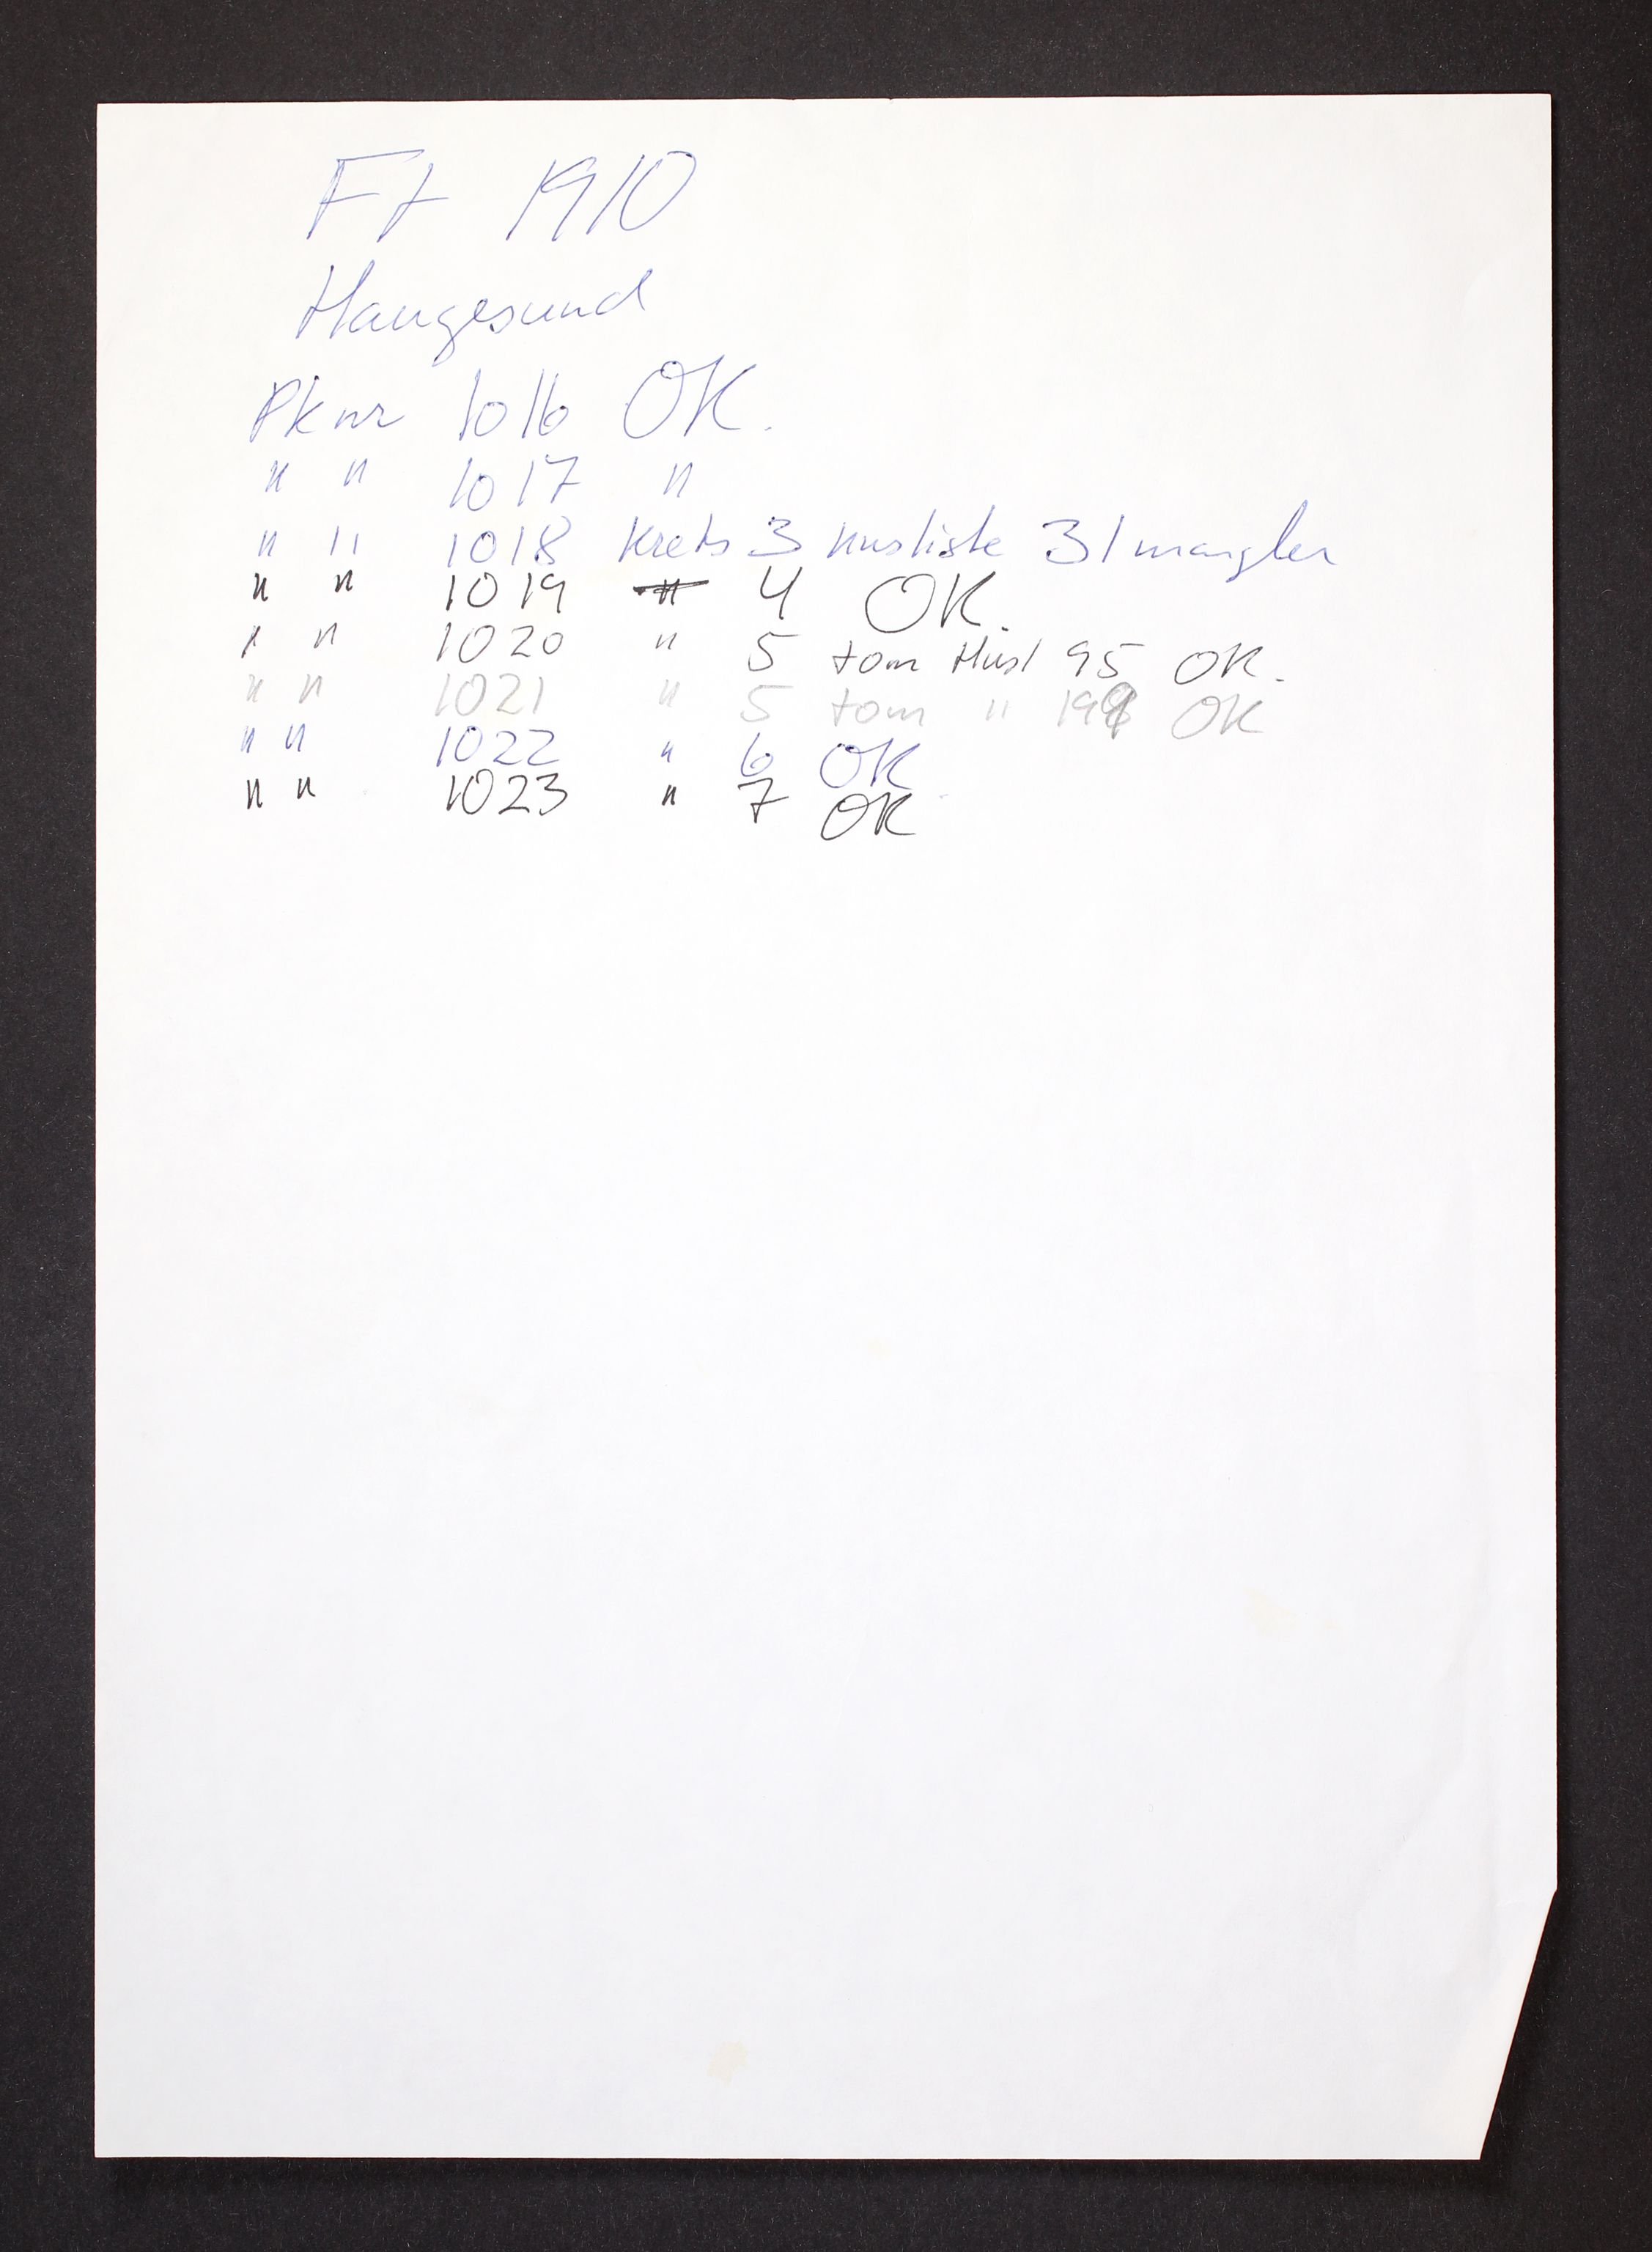 Ft 1910
Haugesund
Pk nr 1016 OK.
" " 1017 "
" " 1018 Krets 3 husliste 31 mangler
" " 1019 " 4 OK.
" " 1020 " 5 tom Husl 95 OK.
" " 1021 " 5 tom " OK
" " 1022 " 6 OK
" " 1023 " 7 OK